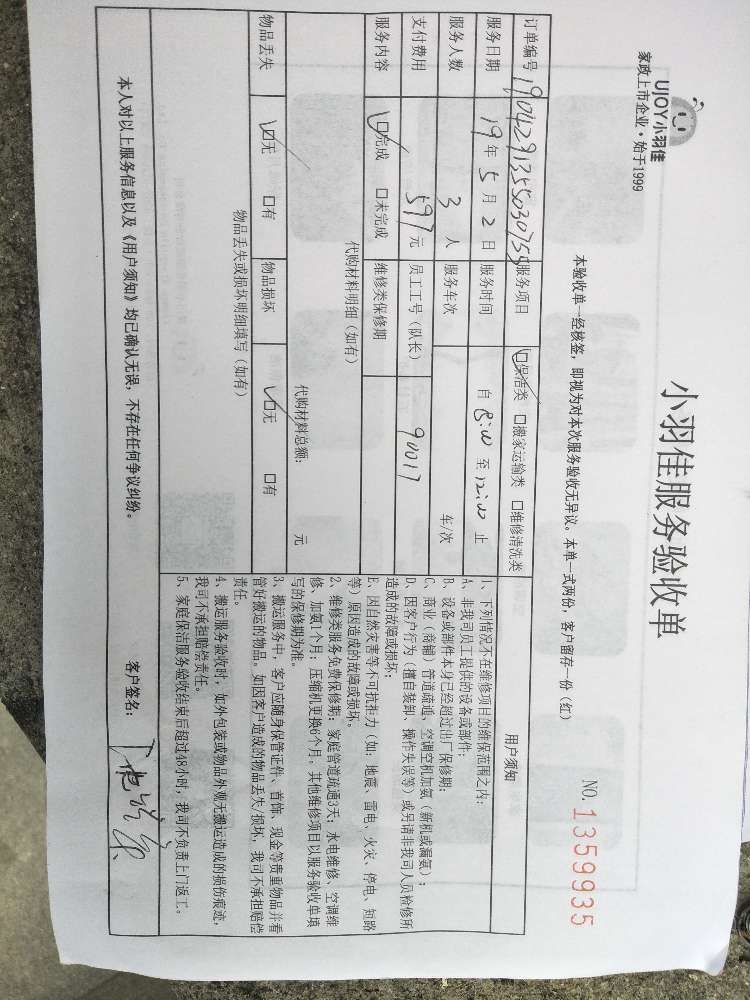 UJOY小羽佳
家政上市企业·始于1999
小羽佳服务验收单
NO. 1359935
本验收单一经核签，即视为对本次服务验收无异议。本单一式两份，客户留存一份（红）
订单编号 19042913550307559 服务项目 ☑保洁类 □搬家运输类 □维修清洗类
服务日期 19年5月2日 服务时间 自 8:00 至 12:00 止
服务人数 3人 服务车次 车/次
支付费用 597元 员工工号（队长） 90017
服务内容 ☑完成 □未完成 维修类保修期
代购材料明细（如有）
代购材料总额： 元
物品丢失 ☑无 □有 物品损坏 ☑无 □有
物品丢失或损坏明细填写（如有）
用户须知
1、下列情况不在维修项目的维保范围之内：
A、非我司员工提供的设备或部件；
B、设备或部件本身已经超过出厂保修期；
C、商业（商铺）管道疏通、空调空机加氨（新机或漏氨）；
D、因客户行为（擅自装卸、操作失误等）或另请非我司人员检修所
造成的故障或损坏；
E、因自然灾害等不可抗拒力（如：地震、雷电、火灾、停电、短路
等）原因造成的故障或损坏。
2、维修类服务免费保修期：家庭管道疏通3天；水电维修、空调维
修、加氨1个月；压缩机更换6个月，其他维修项目以服务验收单填
写的保修期为准。
3、搬运服务中，客户应随身保管证件、首饰、现金等贵重物品并看
管好搬运的物品。如因客户造成的物品丢失/损坏，我司不承担赔偿
责任。
4、搬运服务验收时，如外包装或物品外观无搬运造成的损伤痕迹，
我司不承担赔偿责任。
5、家庭保洁服务验收结束后超过48小时，我司不负责上门返工。
本人对以上服务信息以及《用户须知》均已确认无误，不存在任何争议纠纷。
客户签名：